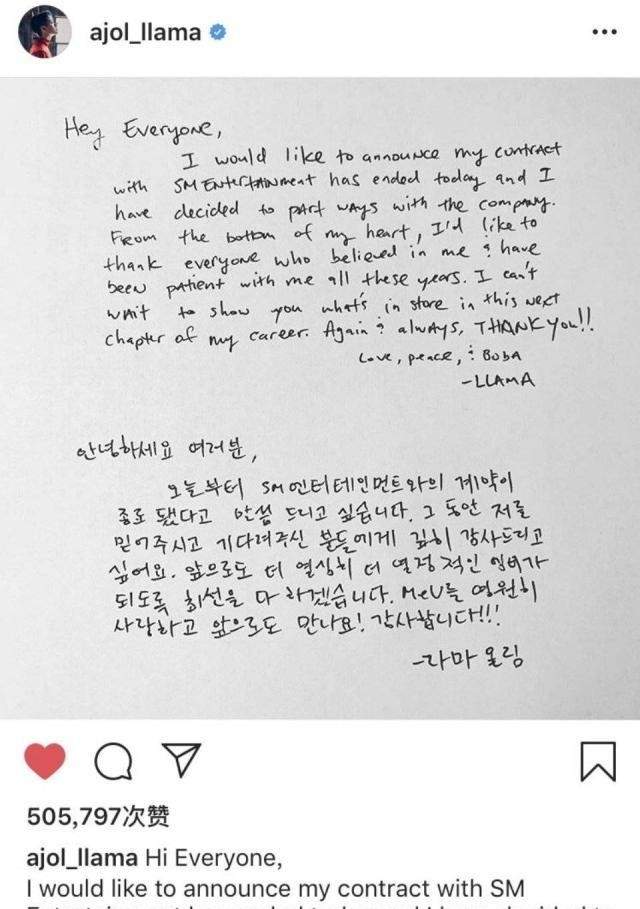 ajol_llama
Hey Everyone,
I would like to announce my contract
with SM Entertainment has ended today and I
have decided to part ways with the company.
From the bottom of my heart, I'd like to
thank everyone who believed in me & have
been patient with me all these years. I can't
wait to show you what's in store in this next
chapter of my career. Again & always, THANK YOU!!
Love, peace, & BOBA
-LLAMA
안녕하세요 여러분,
오늘부터 SM 엔터테인먼트와의 계약이
종료 됐다고 말씀 드리고 싶습니다. 그 동안 저를
믿어주시고 기다려주신 분들에게 깊히 감사드리고
싶어요. 앞으로도 더 열심히 더 열정적인 엠버가
되도록 최선을 다 하겠습니다. MeU들 영원히
사랑하고 앞으로도 만나요! 감사합니다!!!
-라마 올림
505,797次赞
ajol_llama Hi Everyone,
I would like to announce my contract with SM